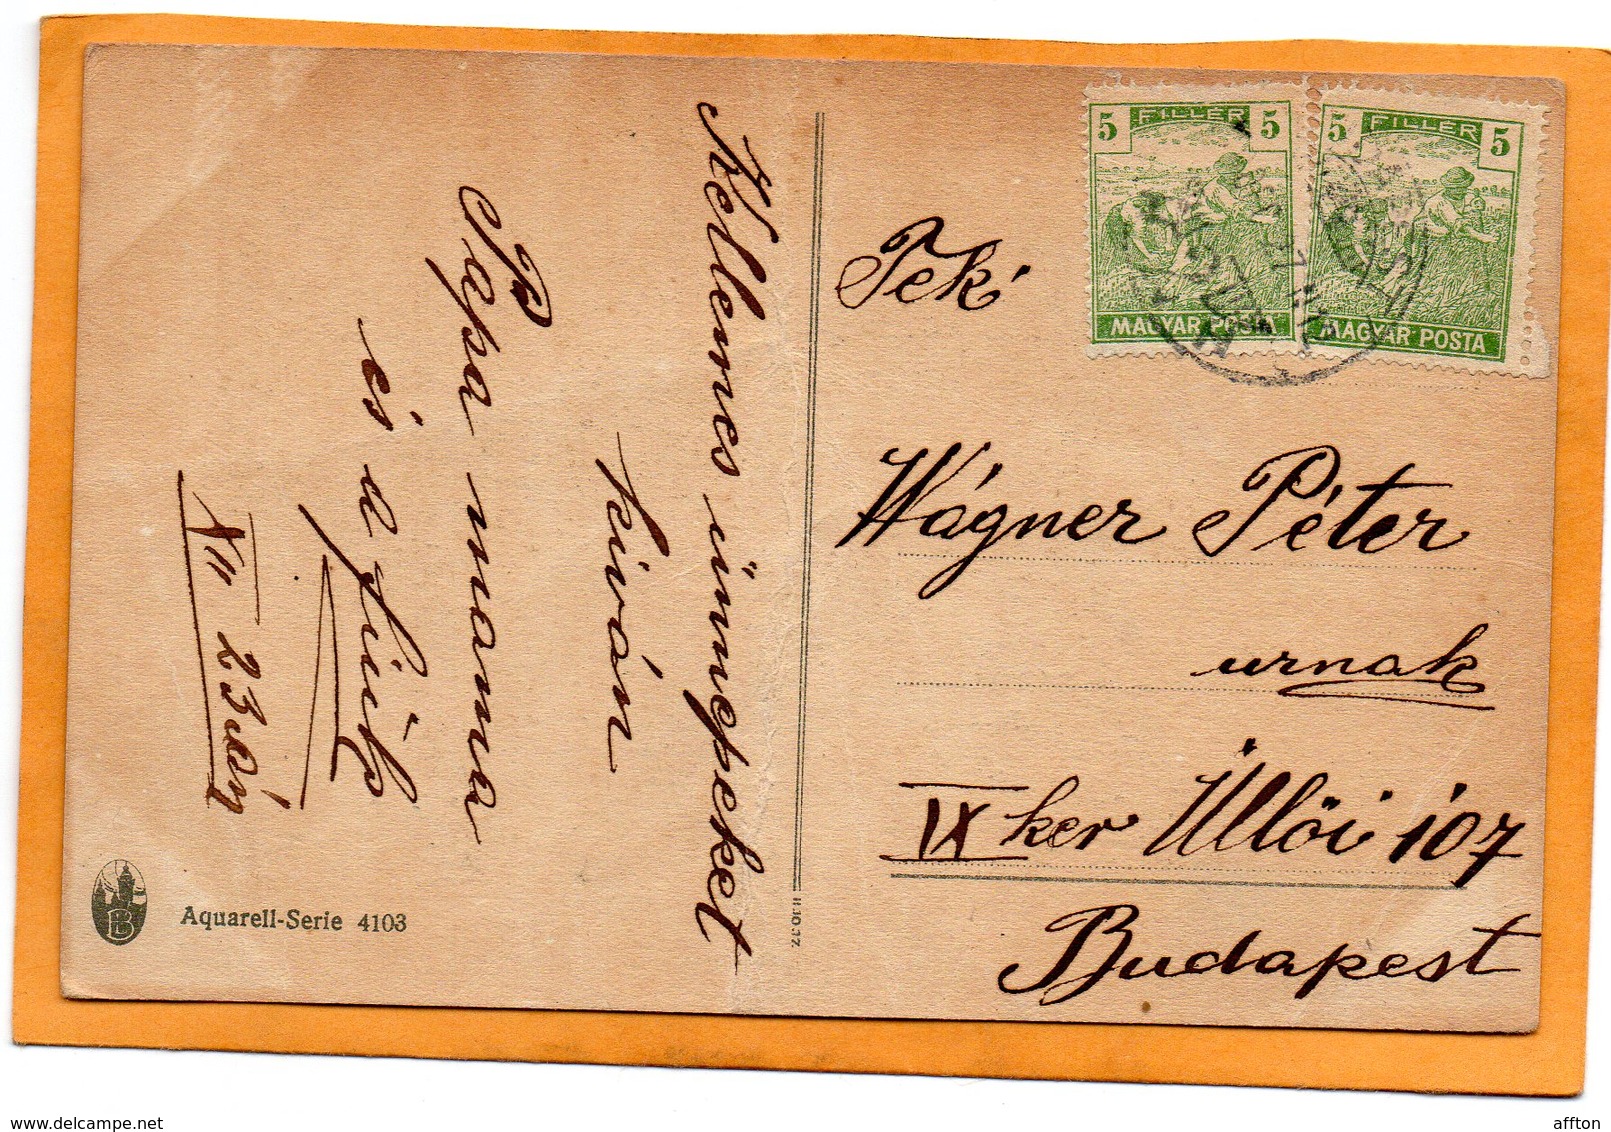 Kellemes ünnepeket
kíván
Papa mama
és a fiúk
XII 23 án
Aquarell-Serie 4103
5 FILLÉR 5
MAGYAR POSTA
5 FILLÉR 5
MAGYAR POSTA
Tek.
Wágner Péter
urnak
IX ker Üllői 107
Budapest
delcampe.net
affton